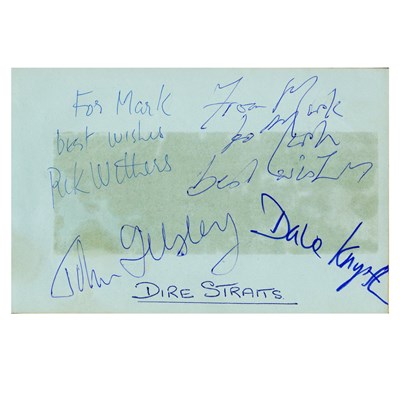 For Mark
best wishes
Pick Withers
From Mark
to Mark
best wishes
John Illsley
Dave Knopf
DIRE STRAITS